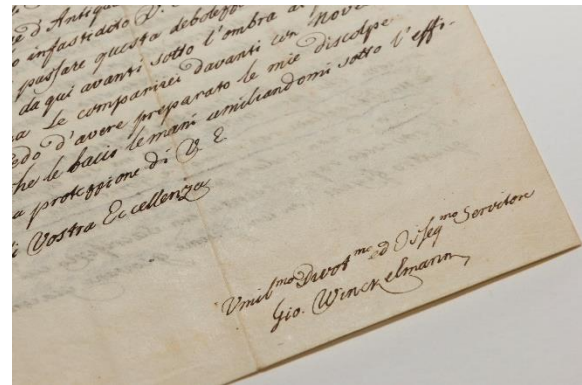 d'Antiqu
infastidito V.
passare questa debole
da qui avanti sotto l'ombra
Le comparirei davanti con nove
d'avere preparato le mie discolpe
he le bacio le mani umiliandomi sotto l'effi-
a protezzione di V. E.
i Vostra Eccellenza
Umil.mo Divot.mo ed Osseq.mo Servitore
Gio. Winckelmann